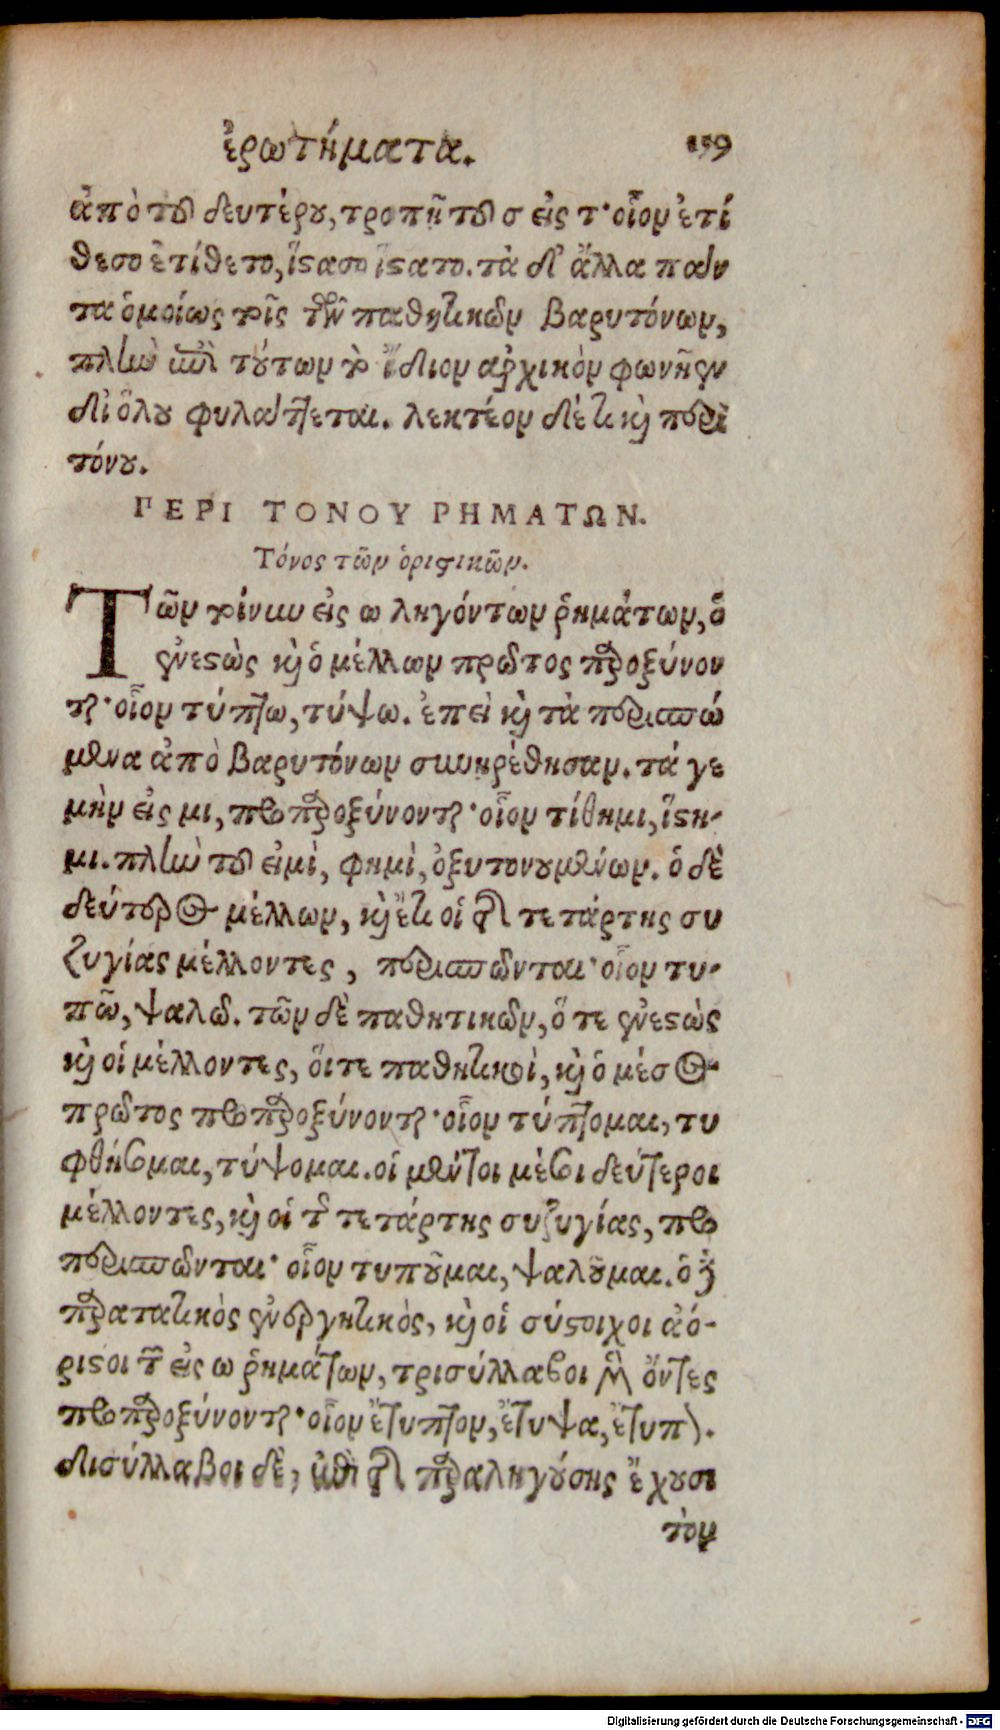 ἐρωτήματα. 159
ἀπὸ τοῦ δευτέρου, τροπῇ τοῦ σ εἰς τ· οἷον ἐτί
θεσο ἐτίθετο, ἵστασο ἵστατο. τὰ δ' ἄλλα πάν
τα ὁμοίως τοῖς τῶν παθητικῶν βαρυτόνων,
πλὴν ἐπὶ τούτων τὸ ἴδιον ἀρχικὸν φωνῆεν
δι' ὅλου φυλάττεται. λεκτέον δέ τι καὶ περὶ
τόνου.
ΠΕΡΙ ΤΟΝΟΥ ΡΗΜΑΤΩΝ.
Τόνος τῶν ὁριστικῶν.
Τῶν τοίνυν εἰς ω ληγόντων ῥημάτων, ὅ
ἐνεστὼς καὶ ὁ μέλλων πρῶτος παροξύνον
ται· οἷον τύπτω, τύψω. ἐπεὶ καὶ τὰ περισπώ
μενα ἀπὸ βαρυτόνων συνῃρέθησαν. τά γε
μὴν εἰς μι, προπαροξύνονται· οἷον τίθημι, ἵστη-
μι. πλὴν τοῦ εἰμὶ, φημὶ, ὀξυτονουμένων. ὁ δὲ
δεύτερος μέλλων, καὶ ἔτι οἱ τῆς τετάρτης συ
ζυγίας μέλλοντες, περισπῶνται· οἷον τυ-
πῶ, ψαλῶ. τῶν δὲ παθητικῶν, ὅ τε ἐνεστὼς
καὶ οἱ μέλλοντες, ὅιτε παθητικοὶ, καὶ ὁ μέσος
πρῶτος προπαροξύνονται· οἷον τύπτομαι, τυ
φθήσομαι, τύψομαι. οἱ μέντοι μέσοι δεύτεροι
μέλλοντες, καὶ οἱ τῆς τετάρτης συζυγίας, προ
περισπῶνται· οἷον τυποῦμαι, ψαλοῦμαι. ὁ δὲ
παρατατικὸς ἐνεργητικὸς, καὶ οἱ σύστοιχοι ἀό-
ριστοι τῶν εἰς ω ῥημάτων, τρισύλλαβοι μὲν ὄντες
προπαροξύνονται· οἷον ἔτυπτον, ἔτυψα, ἔτυπον.
δισύλλαβοι δὲ, ἐπὶ τῆς παραληγούσης ἔχουσι
τὸν
Digitalisierung gefördert durch die Deutsche Forschungsgemeinschaft - DFG